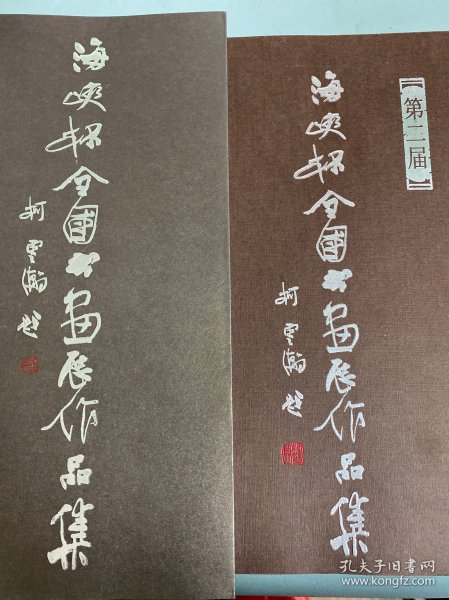 海峡杯全国书画展作品集
柯云瀚题
第二届
海峡杯全國书画展作品集
柯云瀚题
孔夫子旧书网
www.kongfz.com